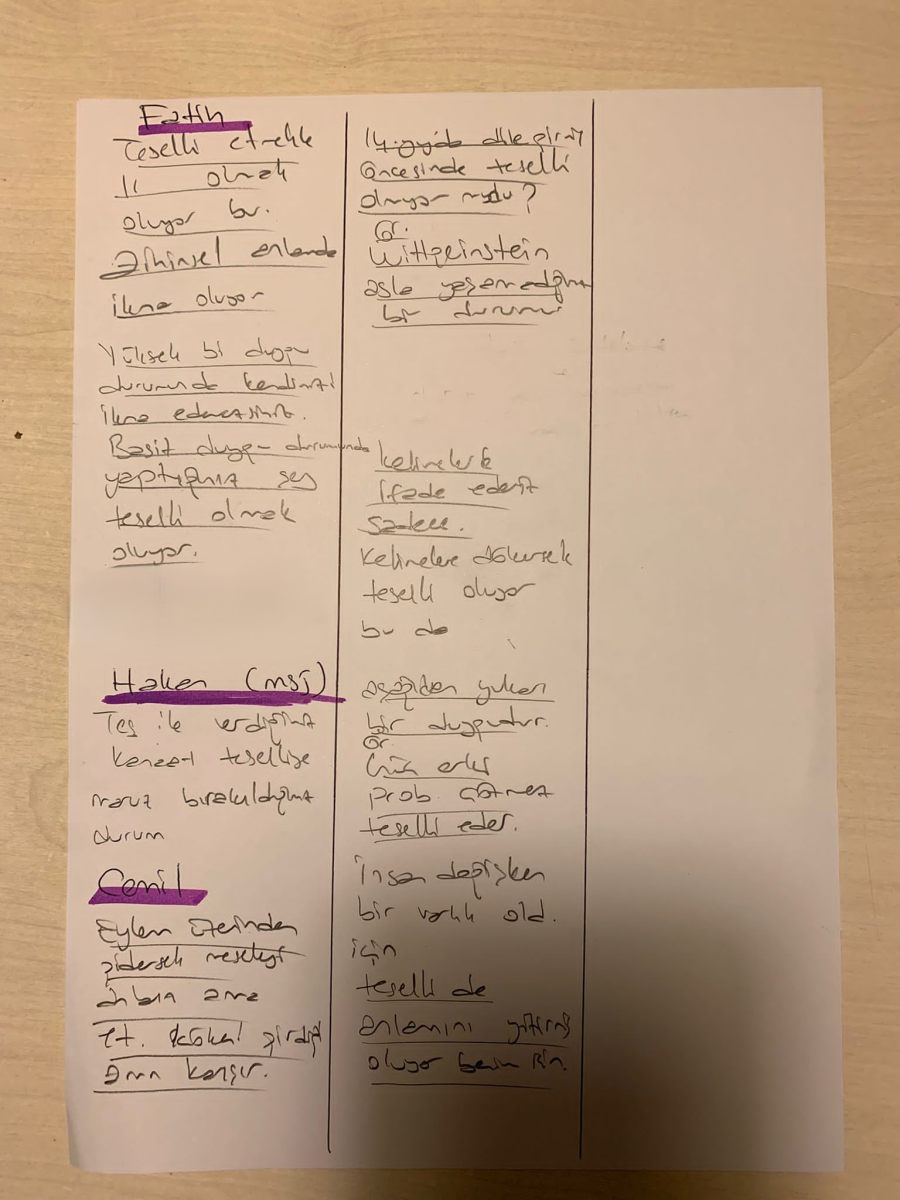 Fatih
Teselli etmekle
olmak
oluyor bu.
Zihinsel anlamda
ikna oluyor
Yüksek bi duygu
durumunda kendimizi
ikna edemezsiniz.
Basit duygu durumunda
yaptığımız şey
teselli olmak
oluyor.
Hakan (msj)
ile verdiğimiz
teselliye
maruz bırakıldığımız
durum
Cemil
Eylem üzerinden
gidersek meseleyi
ama
köken girdiği
karışır.
14. yy'da dile girmiş
öncesinde teselli
olmuyor muydu?
Ör.
Wittgeinstein
asla yaşamadığımız
bir durumu
kelimelerle
ifade ederiz
sadece.
Kelimelere dökersek
teselli oluyor
bu da
aşağıdan yukarı
bir duygudur.
Ör.
prob. çözmez
teselli eder.
İnsan değişken
bir varlık old.
için
teselli de
anlamını yitirmiş
oluyor benim için.